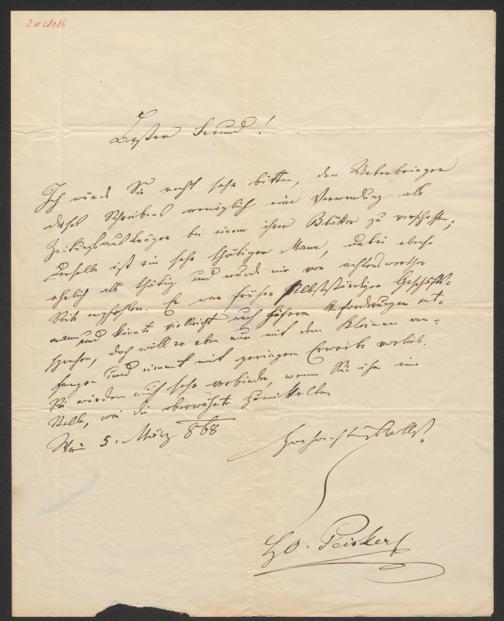 Bester Freund!
Ich würde Sie recht sehr bitten, den Ueberbringer
dieses Schreibens womöglich eine Verwendung als
Zeitungsausträger bei einem ihrer Blätter zu verschaffen;
derselbe ist ein sehr thätiger Mann, dabei ebenso
ehrlich als thätig und wurde mir von achtenswerther
Seite empfohlen. Er war früher selbstständiger Geschäfts-
mann und könnte vielleicht auch höheren Anforderungen ent-
sprechen, doch will er eben nur mit dem Kleinen an-
fangen und nimmt mit geringem Erwerb vorlieb.
Sie würden mich sehr verbinden, wenn Sie ihm eine
Stelle, wie die erwähnte
Wien 5. März 868
Hochachtungsvollst
Peisker